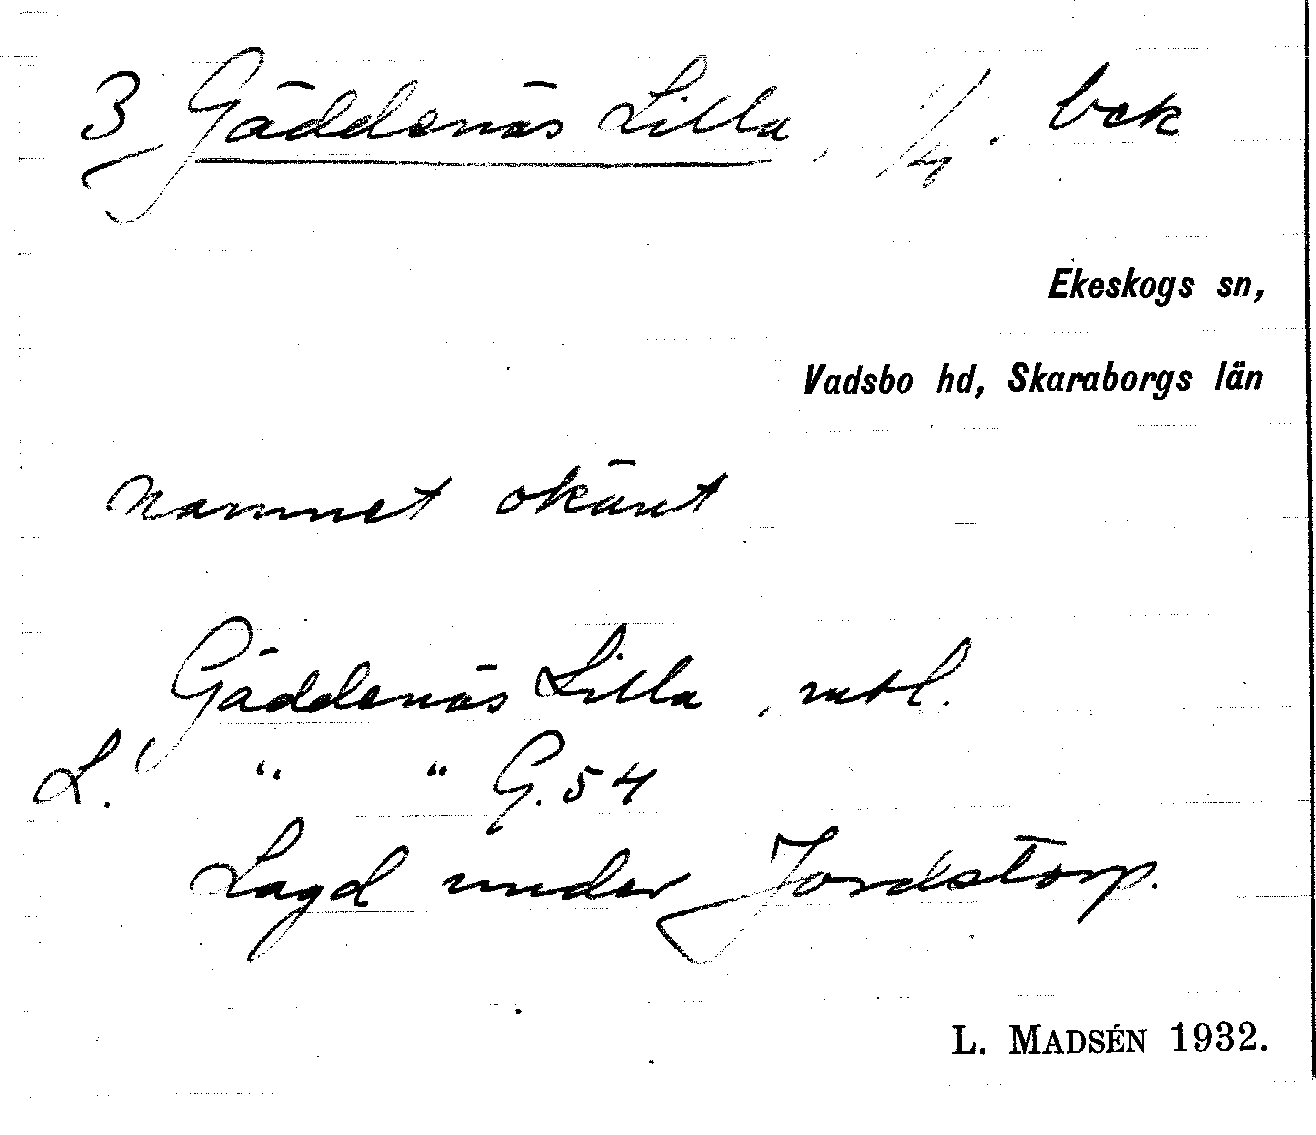 3 Gäddenäs Lilla, 1/4. bok
Ekeskogs sn,
Vadsbo hd, Skaraborgs län
Namnet okänt
Gäddenäs Lilla, mtl.
L. " " G. 54
Lagd under Jordstorp.
L. MADSÉN 1932.